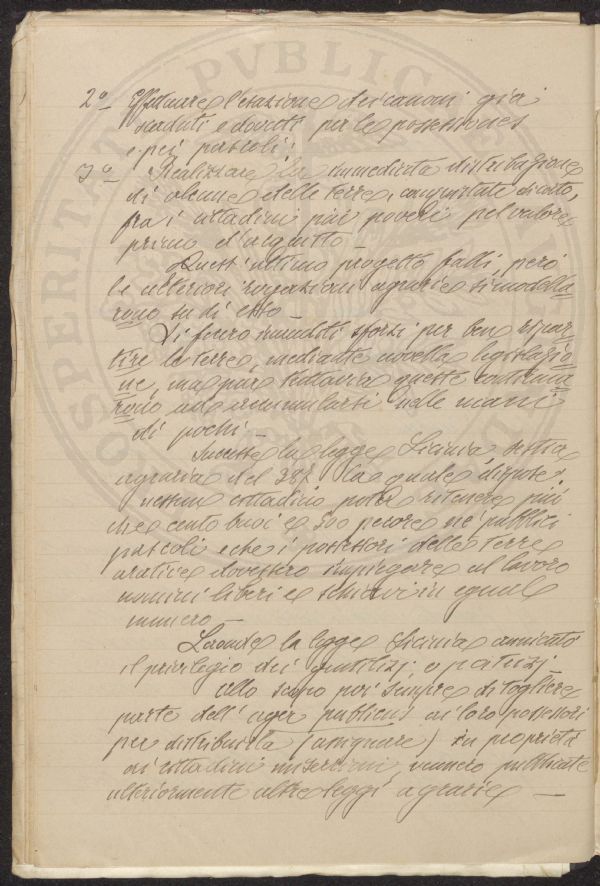 2º Effettuare l'esazione dei canoni già
scaduti e dovuti per le possessioni
e pei pascoli;
3º Realizzare la immediata distribuzione
di alcune delle terre, conquistate
fra i cittadini più poveri pel valore
primo d'acquisto —
Quest'ultimo progetto fallì, però
le ulteriori rogazioni agrarie si modella-
rono su di esso —
Si fecero inauditi sforzi per ben ripar-
tire le terre, mediante novella legislazio-
ne, ma pure tuttavia queste continua-
rono ad accumularsi nelle mani
di pochi —
Successe la legge Licinia Sestia
agraria del 387 la quale dispose:
nessun cittadino potrà ritenere più
che cento buoi e 500 pecore ne' pubblici
pascoli e che i possessori delle terre
aratice dovessero impiegare al lavoro
uomini liberi e schiavi in eguale
numero —
Laonde la legge Licinia annientò
il privilegio dei gentilizj o patrizj
Allo scopo poi sempre di togliere
parte dell'ager publicus ai loro possessori
per distribuirla (assignare) in proprietà
ai cittadini miserrimi, vennero pubblicate
ulteriormente altre leggi agrarie —
PROSPERITATI PUBLICAE AU